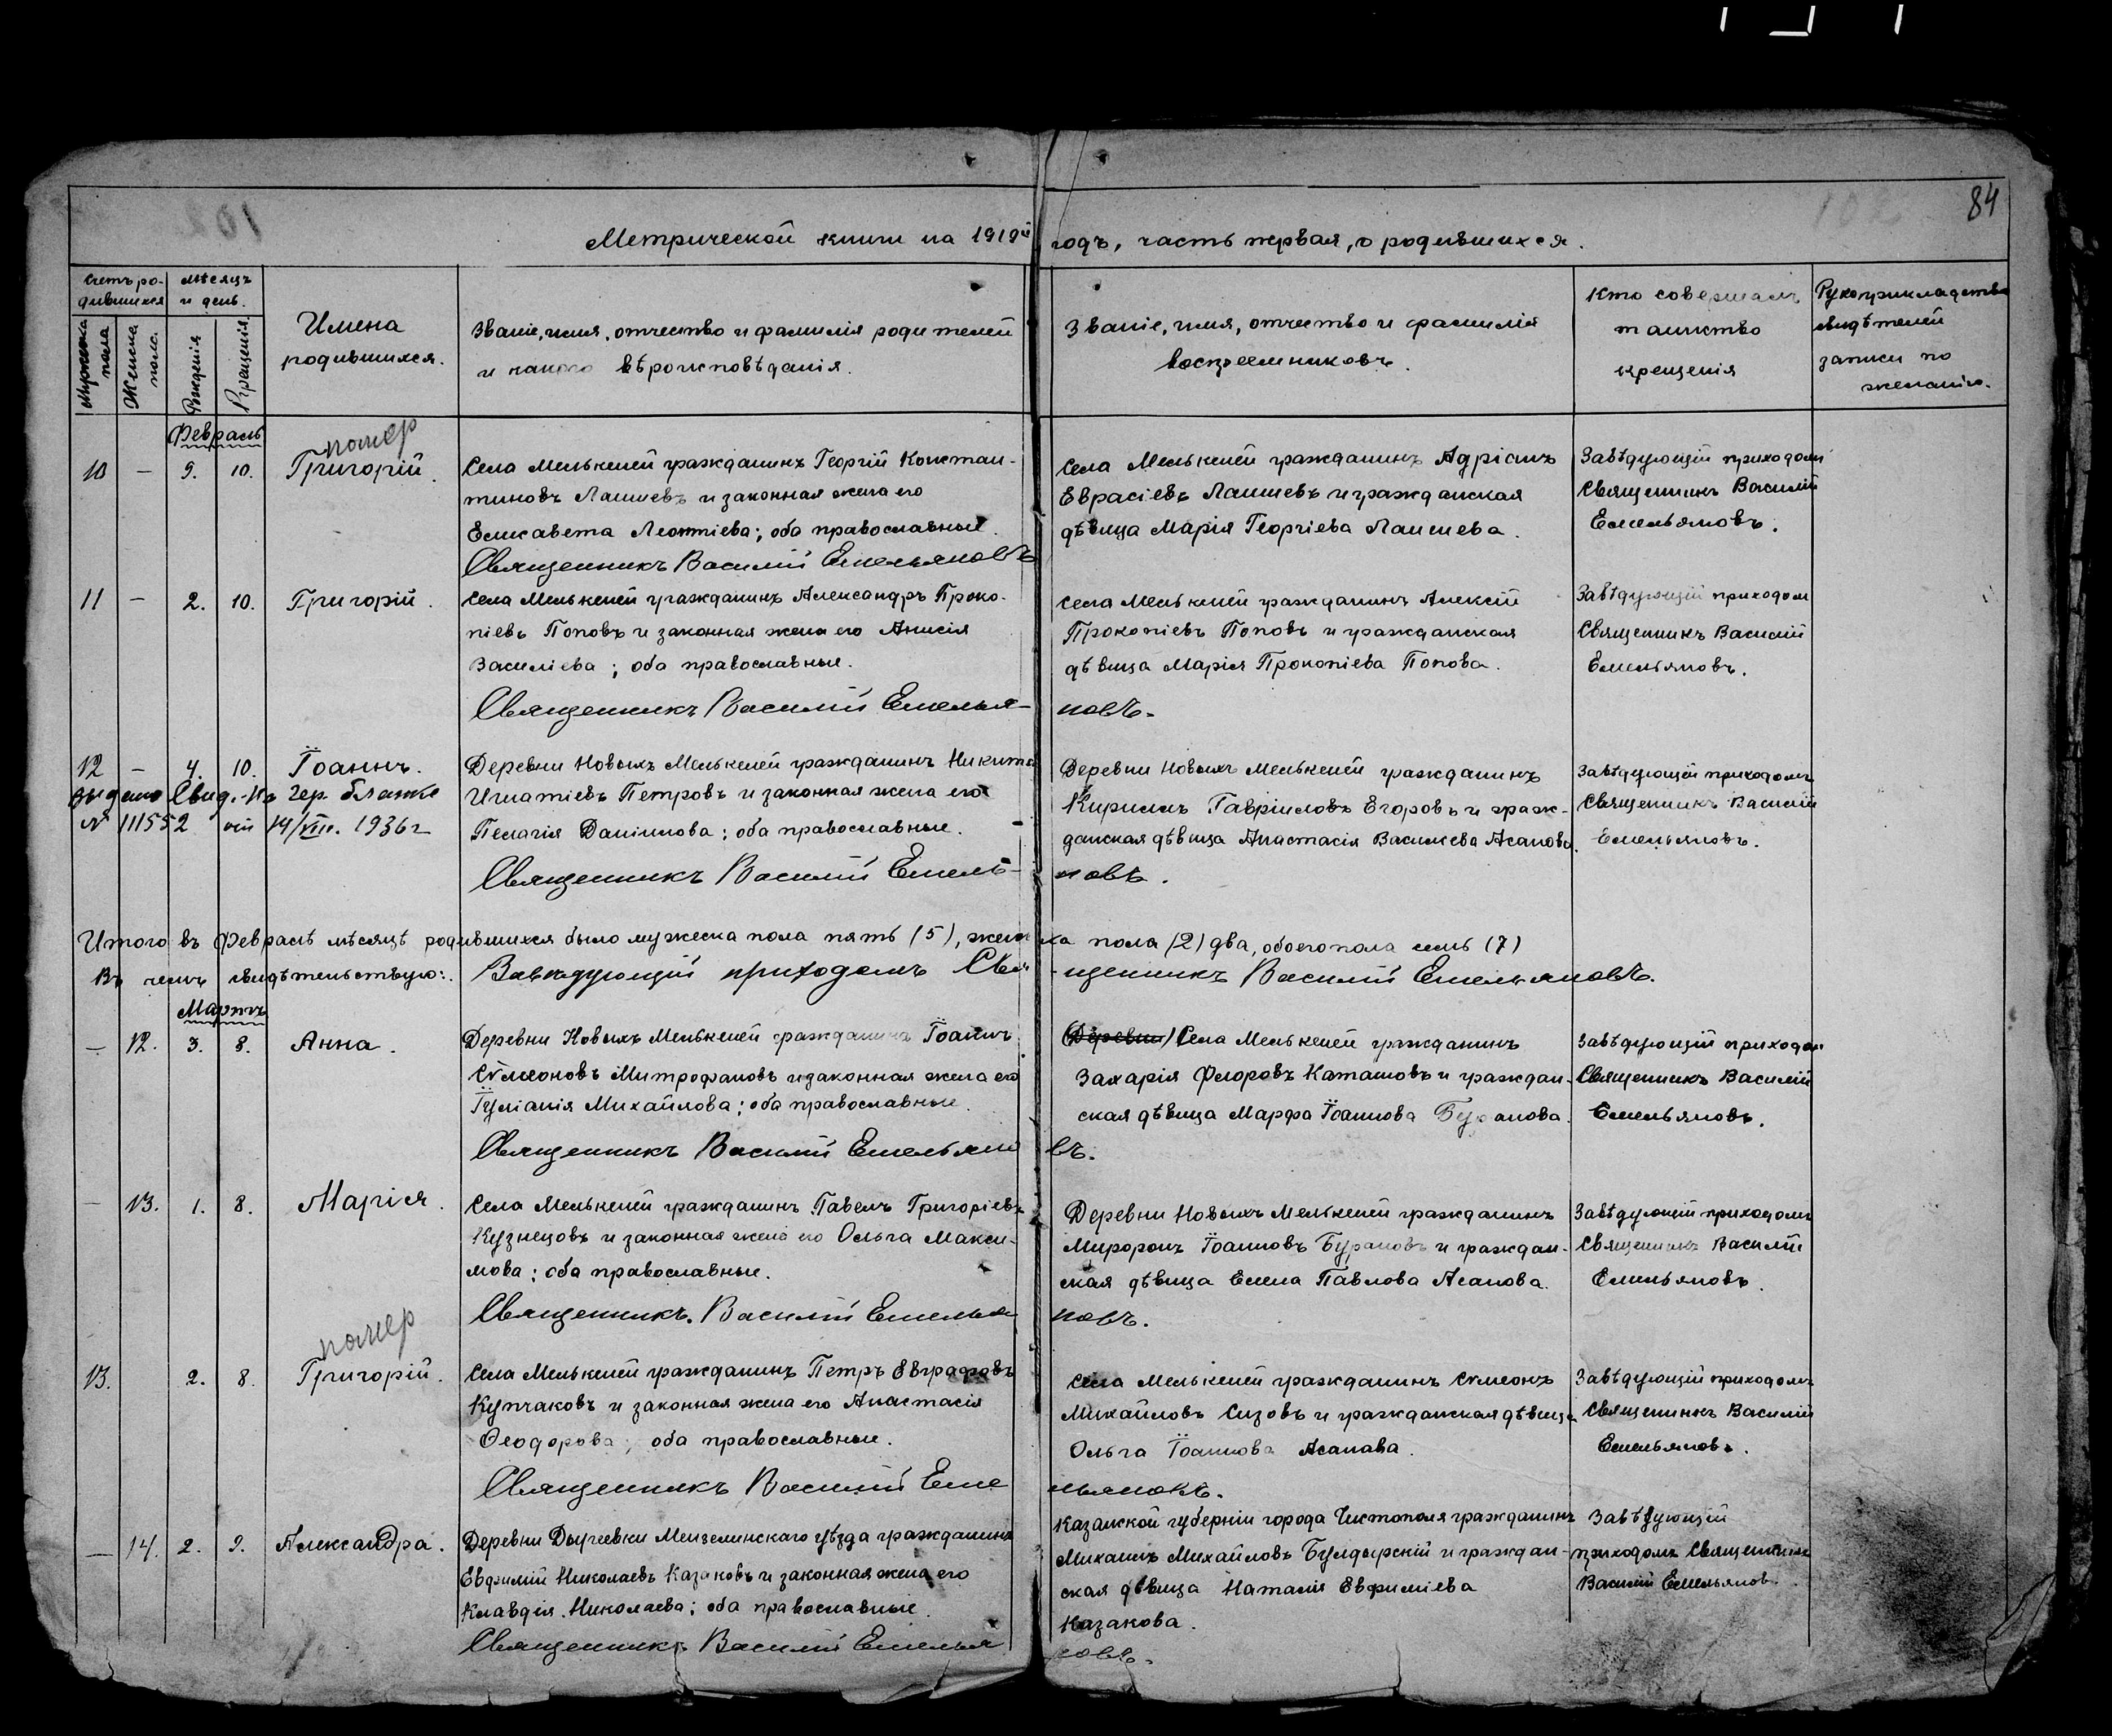 84
Метрической книги на 1919й годъ, часть первая, о родившихся.
Счетъ родившихся
Мѣсяцъ и день.
Мужеска пола
Женска пола.
Рожденія
Крещенія
Имена родившихся.
Званіе, имя, отчество и фамилія родителей
и какого вѣроисповѣданія.
Званіе, имя, отчество и фамилія
воспріемниковъ.
Кто совершалъ
таинство
крещенія
Рукоприкладство
свидѣтелей
записи по
желанію.
Февраль
помер
10 — 9. 10. Григорій.
Села Мелькеней гражданинъ Георгій Констан-
тиновъ Лаишевъ и законная жена его
Елисавета Леонтіева; оба православные.
Священникъ Василій Емельяновъ
Села Мелькеней гражданинъ Адріанъ
Еврасіевъ Лаишевъ и гражданская
дѣвица Марія Георгіева Лаишева.
Завѣдующій приходомъ
Священникъ Василій
Емельяновъ.
11 — 2. 10. Григорій.
Села Мелькеней гражданинъ Александръ Проко-
піевъ Поповъ и законная жена его Анисія
Василіева; оба православные.
Села Мелькеней гражданинъ Алексій
Прокопіевъ Поповъ и гражданская
дѣвица Марія Прокопіева Попова.
Завѣдующій приходом
Священникъ Василій
Емельяновъ.
Священникъ Василій Емелья-
новъ.
12 — 4. 10. Іоаннъ.
выдано Свид.-На чер. бланке
N 111552 от 14/VIII. 1936г
Деревни Новыхъ Мелькеней гражданинъ Никита
Игнатіевъ Петровъ и законная жена его
Пелагія Даніилова; оба православные.
Деревни Новыхъ Мелькеней гражданинъ
Кириллъ Гавріиловъ Егоровъ и граж-
данская дѣвица Анастасія Василіева Асанова.
Завѣдующій приходомъ
Священникъ Василій
Емельяновъ.
Священникъ Василій Емель-
новъ.
Итого въ Февралѣ мѣсяцѣ родившихся было мужеска пола пять (5), женска пола (2) два, обоего пола семь (7)
Въ чемъ свидѣтельствую: Завѣдующій приходомъ Свя-
щенникъ Василій Емельяновъ.
Мартъ
— 12. 3. 8. Анна.
Деревни Новыхъ Мелькеней гражданинъ Іоаннъ
Сѵмеоновъ Митрофановъ и законная жена его
Іуліанія Михайлова; оба православные.
(Деревни) Села Мелькеней гражданинъ
Захарія Флоровъ Каташовъ и граждан-
ская дѣвица Марфа Іоаннова Буранова.
Завѣдующій приходом
Священникъ Василій
Емельяновъ.
Священникъ Василій Емельяно
въ.
— 13. 1. 8. Марія.
Села Мелькеней гражданинъ Павелъ Григоріевъ
Кузнецовъ и законная жена его Ольга Макси-
мова; оба православные.
Деревни Новыхъ Мелькеней гражданинъ
Миѳоронъ Іоанновъ Бурановъ и граждан-
ская дѣвица Елена Павлова Асанова.
Завѣдующій приходомъ
Священникъ Василій
Емельяновъ.
Священникъ. Василій Емелья
новъ.
помер
13. 2. 8. Григорій.
Села Мелькеней гражданинъ Петръ Евграфовъ
Купчаковъ и законная жена его Анастасія
Ѳеодорова; оба православные.
Села Мелькеней гражданинъ Сѵмеонъ
Михайловъ Сизовъ и гражданская дѣвица
Ольга Іоаннова Асанава.
Завѣдующій приходомъ
Священникъ Василій
Емельяновъ.
Священникъ Василій Еме
льяновъ.
— 14. 2. 9. Александра.
Деревни Дьучевки Мензелинскаго уѣзда гражданинъ
Евфимій Николаевъ Казаковъ и законная жена его
Клавдія Николаева; оба православные.
Казанской губерніи города Чистополя гражданинъ
Михаилъ Михайловъ Булдырскій и граждан-
ская дѣвица Наталія Евфиміева
Казакова.
Завѣдующій
приходомъ Священникъ
Василій Емельянов
Священникъ Василій Емелья
новъ.